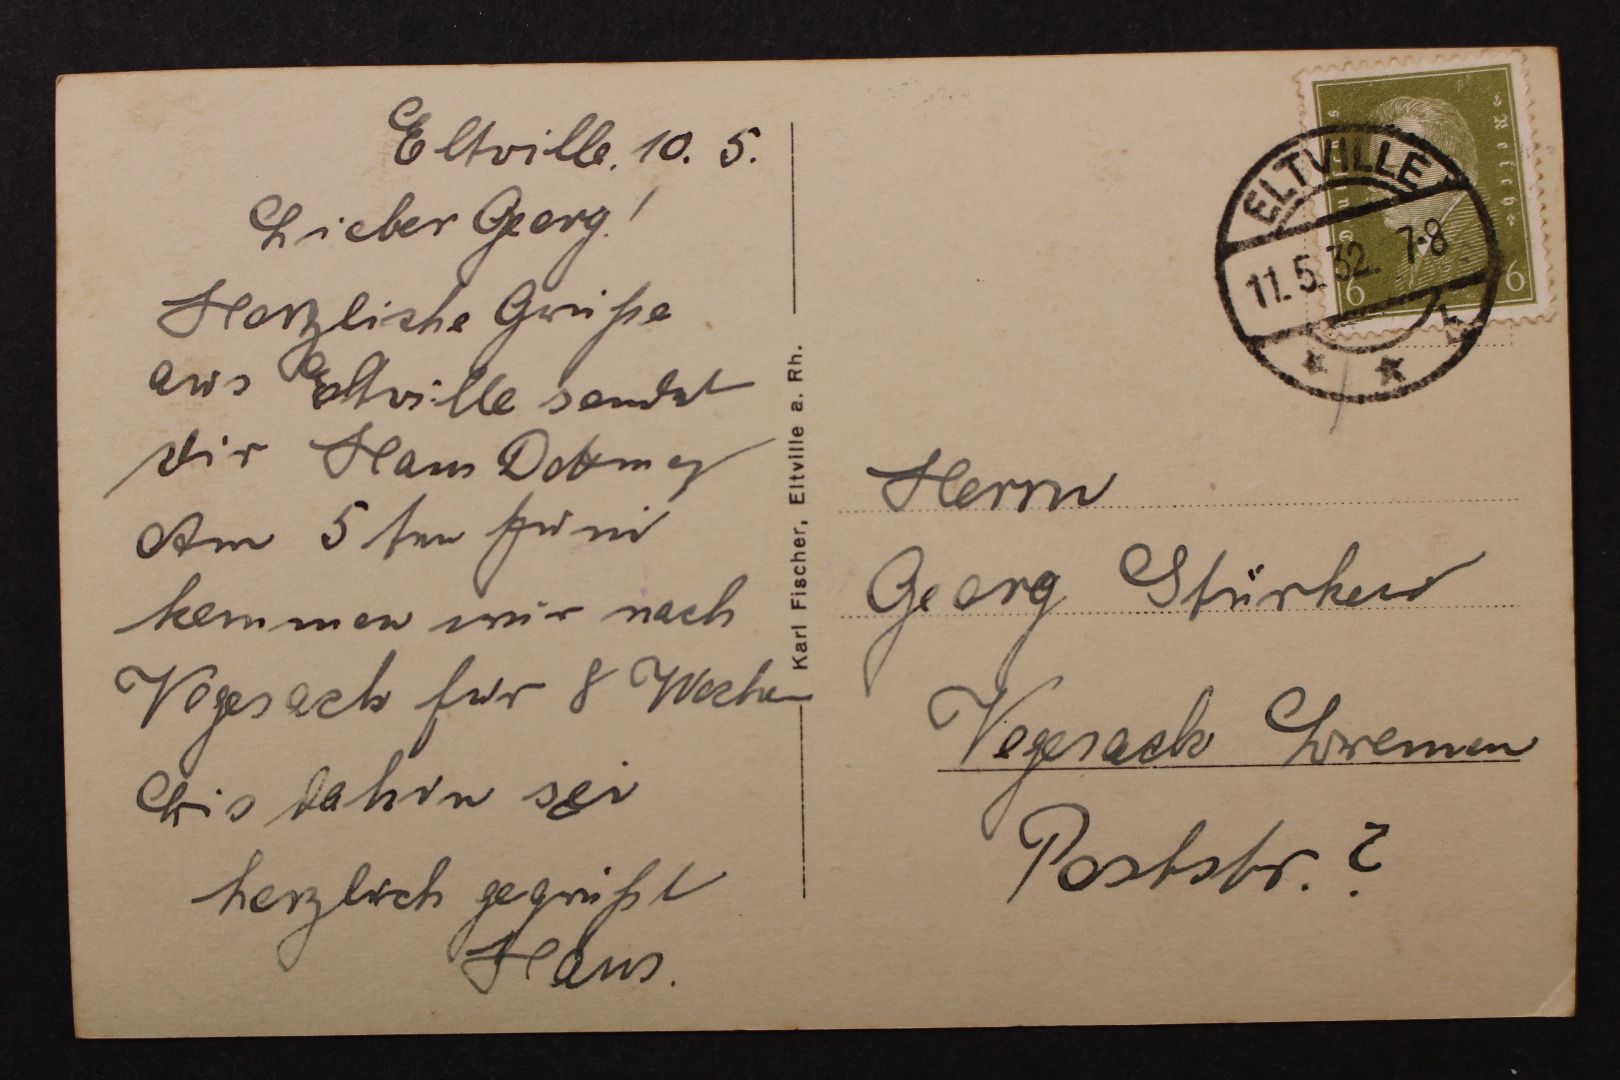 Eltville, 10. 5.
Lieber Georg!
Herzliche Grüße
aus Eltville sendet
dir Hans Dottmay
Am 5ten Juni
kommen wir nach
Vegesack für 8 Wochen
bis dahin sei
herzlich gegrüßt
Hans.
Karl Fischer, Eltville a. Rh.
Deutsches Reich
6 6
ELTVILLE
11. 5. 32. 7-8
* * b
Herrn
Georg Stürken
Vegesack Bremen
Poststr. ?